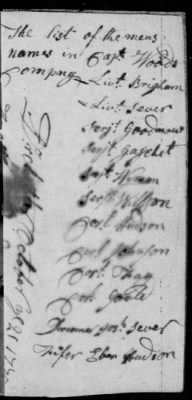 The list of the mens
names in Capt Woods
Company Livt. Brigham
Livt. sever
serjt Goodnow
serjt Gaschet
serjt Wyman
serjt Willson
Corl Hudson
Corl Johnson
Corl Thay
Corl
Drumer Josh. sever
fhifer Eben Hudson
October